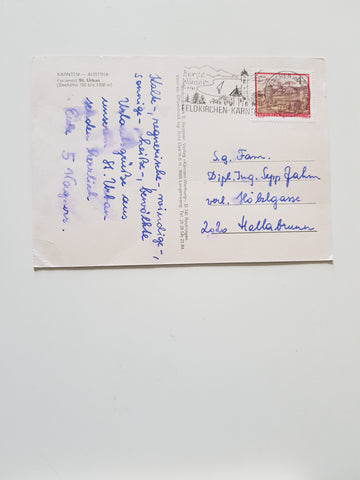 KÄRNTEN — AUSTRIA
Ferienort St. Urban
(Seehöhe 750 bis 1300 m)
Kalte-, regnerische-, windige-,
sonnige-, heiße-, bewölkte
Urlaubsgrüße aus
unserem St. Urban
senden herzlich
Eure 5 Wagners.
Berge
Wälder
FELDKIRCHEN-KÄRNTEN
REPUBLIK
S.g. Fam.
Dipl. Ing. Sepp Jahm
verl. Hölzlgasse
2020 Hollabrunn